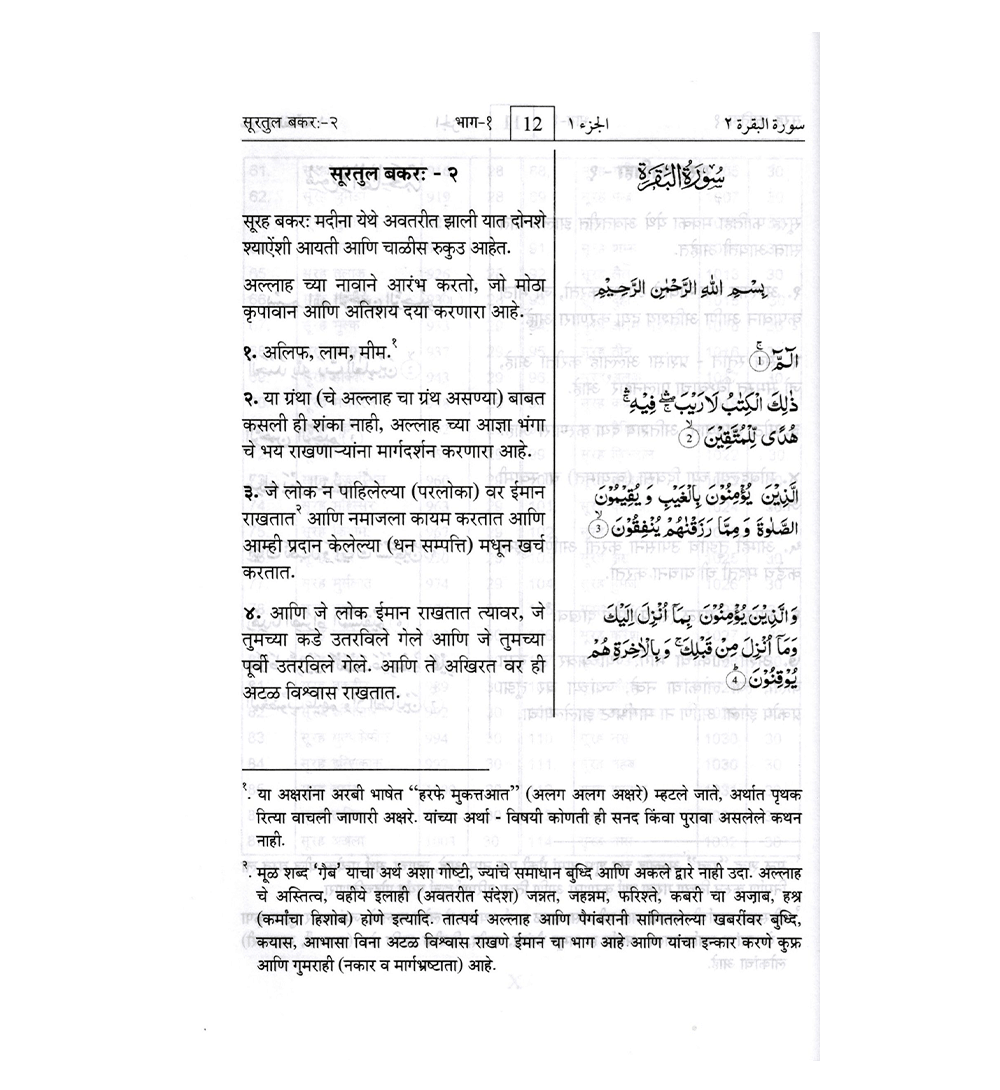 सूरतुल बकरः-२ भाग-१ 12 الجزء ١ سورة البقرة ٢
सूरतुल बकरः - २
सूरह बकरः मदीना येथे अवतरीत झाली यात दोनशे
श्याऐंशी आयती आणि चाळीस रुकुउ आहेत.
अल्लाह च्या नावाने आरंभ करतो, जो मोठा
कृपावान आणि अतिशय दया करणारा आहे.
१. अलिफ, लाम, मीम.१
२. या ग्रंथा (चे अल्लाह चा ग्रंथ असण्या) बाबत
कसली ही शंका नाही, अल्लाह च्या आज्ञा भंगा
चे भय राखणाऱ्यांना मार्गदर्शन करणारा आहे.
३. जे लोक न पाहिलेल्या (परलोका) वर ईमान
राखतात२ आणि नमाजला कायम करतात आणि
आम्ही प्रदान केलेल्या (धन सम्पत्ति) मधून खर्च
करतात.
४. आणि जे लोक ईमान राखतात त्यावर, जे
तुमच्या कडे उतरविले गेले आणि जे तुमच्या
पूर्वी उतरविले गेले. आणि ते अखिरत वर ही
अटळ विश्वास राखतात.
سُوْرَةُ الْبَقَرَةِ
بِسْمِ اللهِ الرَّحْمٰنِ الرَّحِيْمِ
الٓمّٓ ۚ ①
ذٰلِكَ الْكِتٰبُ لَا رَيْبَ ۛۖ فِيْهِ ۛۚ
هُدًى لِّلْمُتَّقِيْنَ ۙ ②
الَّذِيْنَ يُؤْمِنُوْنَ بِالْغَيْبِ وَ يُقِيْمُوْنَ
الصَّلٰوةَ وَ مِمَّا رَزَقْنٰهُمْ يُنْفِقُوْنَ ۙ ③
وَالَّذِيْنَ يُؤْمِنُوْنَ بِمَآ اُنْزِلَ اِلَيْكَ
وَمَآ اُنْزِلَ مِنْ قَبْلِكَ ۚ وَ بِالْاٰخِرَةِ هُمْ
يُوْقِنُوْنَ ؕ ④
१. या अक्षरांना अरबी भाषेत “हरफे मुकत्तआत” (अलग अलग अक्षरे) म्हटले जाते, अर्थात पृथक
रित्या वाचली जाणारी अक्षरे. यांच्या अर्था - विषयी कोणती ही सनद किंवा पुरावा असलेले कथन
नाही.
२. मूळ शब्द ‘गै़ब’ याचा अर्थ अशा गोष्टी, ज्यांचे समाधान बुध्दि आणि अकले द्वारे नाही उदा. अल्लाह
चे अस्तित्व, वहीये इलाही (अवतरीत संदेश) जन्नत, जहन्नम, फरिश्ते, कबरी चा अजा़ब, हश्र
(कर्मांचा हिशोब) होणे इत्यादि. तात्पर्य अल्लाह आणि पैगंबरानी सांगितलेल्या खबरींवर बुध्दि,
कयास, आभासा विना अटळ विश्वास राखणे ईमान चा भाग आहे आणि यांचा इन्कार करणे कुफ्र
आणि गुमराही (नकार व मार्गभ्रष्टाता) आहे.